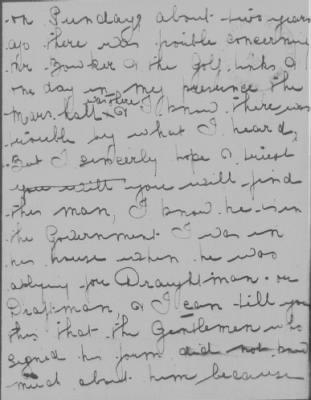 on Sundays about two years
ago there was trouble concerning
Mr. Bowker & the Golf links &
one day in my presence the
Mars hall was there & I know there was
trouble by what I heard,
But I sincerely hope & trust
you will you will find
this man, I know he is in
the Government I was in
his house when he was
applying for Draughtman or
Draftman, & I can tell you
this that the Gentlemen who
signed his form did not know
much about him because